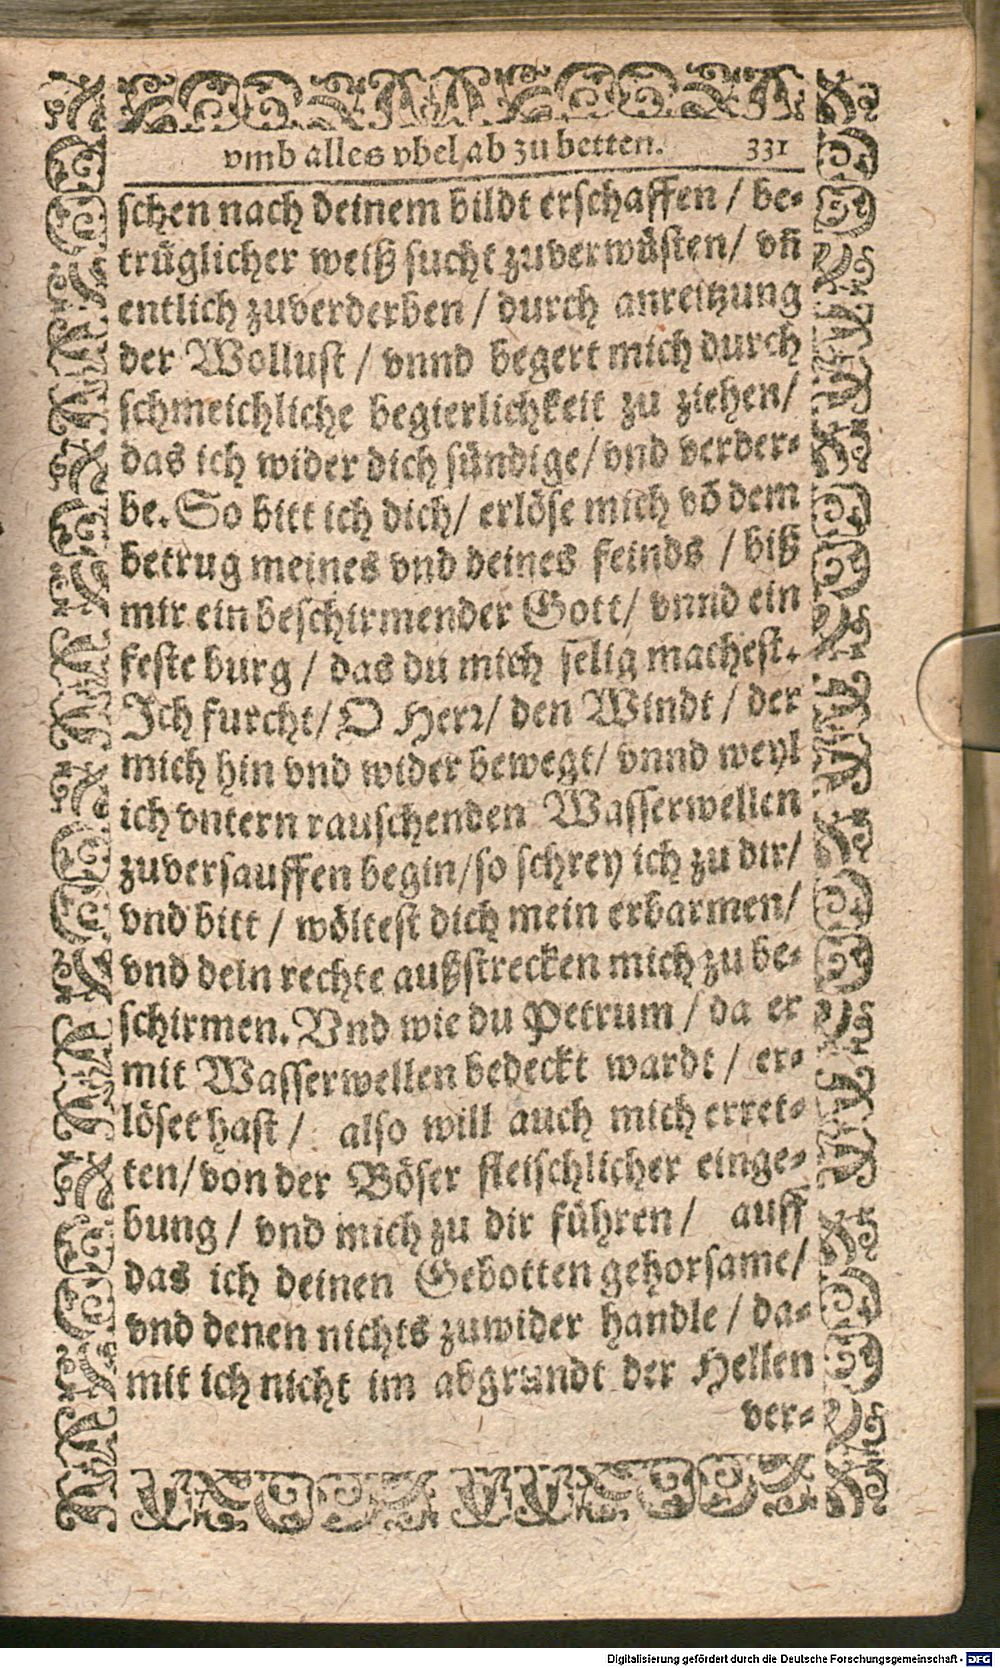 vmb alles vbel ab zu betten. 331
schen nach deinem bildt erschaffen / be-
trüglicher weiß sucht zuverwüsten / vñ
entlich zuverderben / durch anreitzung
der Wollust / vnnd begert mich durch
schmeichliche begierlichkeit zu ziehen /
das ich wider dich sündige / vnd verder-
be. So bitt ich dich / erlöse mich võ dem
betrug meines vnd deines feinds / biß
mir ein beschirmender Gott / vnnd ein
feste burg / das du mich selig machest.
Ich furcht / O Herr / den Windt / der
mich hin vnd wider bewegt / vnnd weyl
ich vntern rauschenden Wasserwellen
zuversauffen begin / so schrey ich zu dir /
vnd bitt / wöltest dich mein erbarmen /
vnd dein rechte außstrecken mich zu be-
schirmen. Vnd wie du Petrum / da er
mit Wasserwellen bedeckt wardt / er-
löset hast / also will auch mich erret-
ten / von der Böser fleischlicher einge-
bung / vnd mich zu dir führen / auff
das ich deinen Gebotten gehorsame /
vnd denen nichts zuwider handle / da-
mit ich nicht im abgrundt der Hellen
ver-
Digitalisierung gefördert durch die Deutsche Forschungsgemeinschaft - DFG